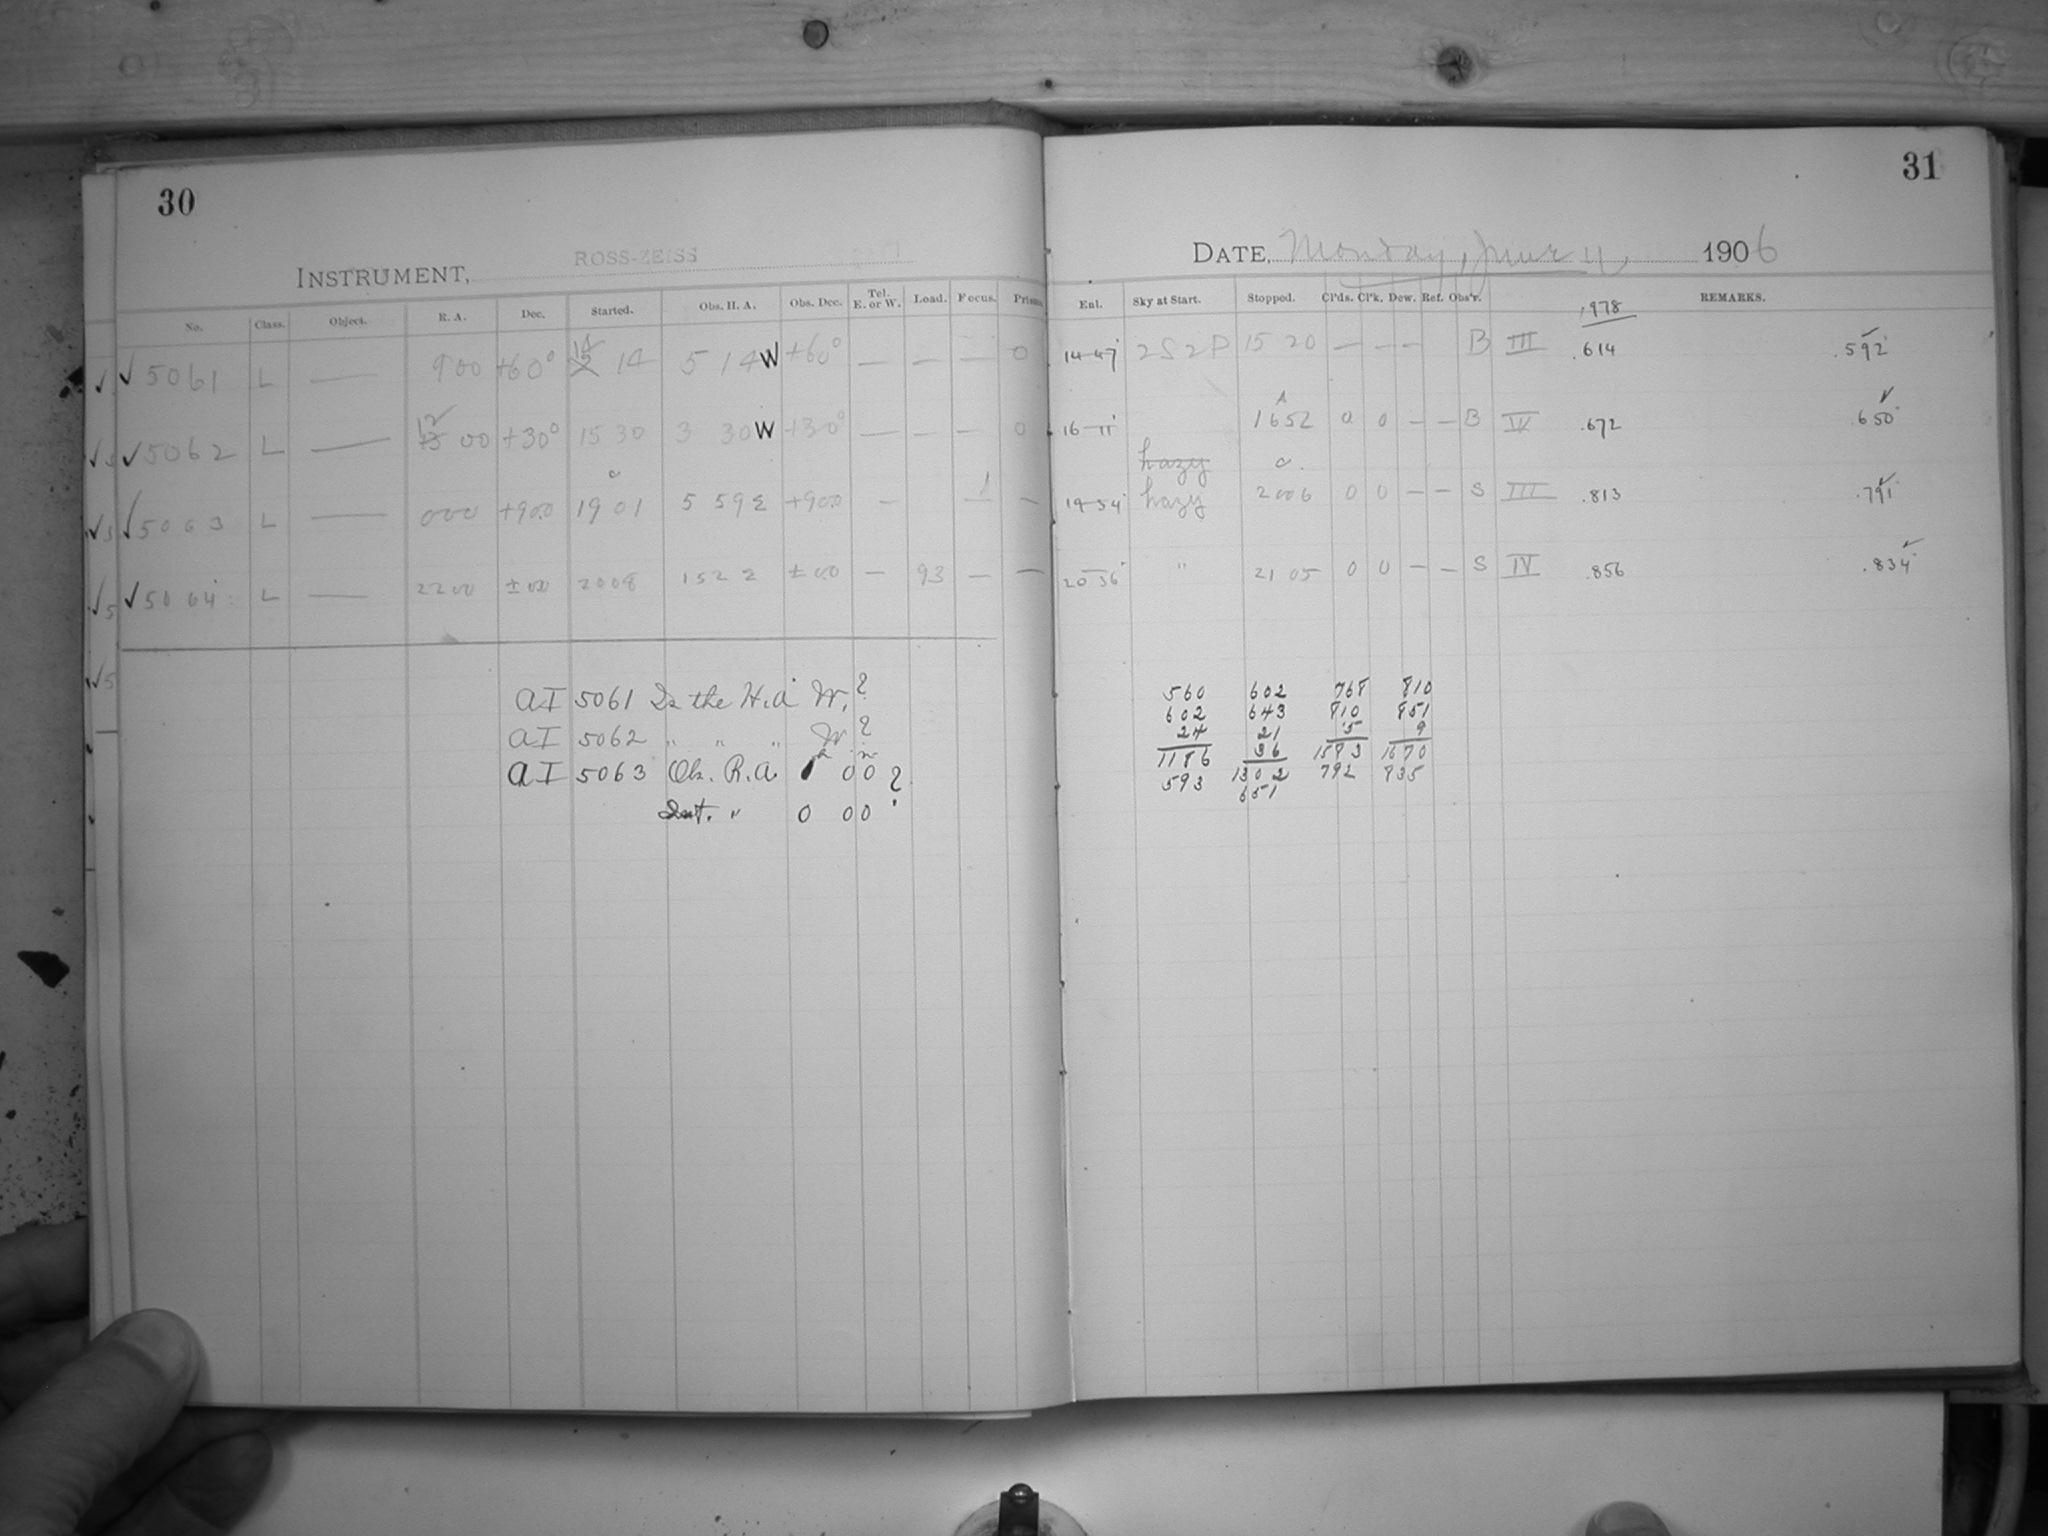 30
INSTRUMENT, ROSS-ZEISS
No. Class. Object. R. A. Dec. Started. Obs. H. A. Obs. Dec. Tel. E. or W. Load. Focus. Prisms
✓ ✓ 5061 L — 9 00 +60° 14 14 5 14 W +60° — — — 0
✓ ✓ 5062 L — 12 00 +30° 15 30 3 30 W +30° — — — 0
✓ ✓ 5063 L — 0 00 +90.0 19 01 5 59 E +90.0 — — —
✓ ✓ 5064 L — 22 00 ±00 20 08 1 52 E ±00 — 93 — —
AI 5061 Is the H.A. W.?
AI 5062 " " " W?
AI 5063 Ob. R.A. 1 00?
Int. " 0 00
31
DATE, Monday, June 11, 1906
Ent. Sky at Start. Stopped. Cl'ds. Cl'k. Dew. Ref. Obs'r. REMARKS.
.978
14-47 2S2P 15 20 — — — B III .614 .592
16-11 16 52 0 0 — — B IV .672 .650
hazy
19-34 hazy 20 06 0 0 — — S III .813 .791
20-36 " 21 05 0 0 — — S IV .856 .834
560 602 768 810
602 643 810 851
24 21 5 9
1186 36 1583 1670
593 1302 792 835
651